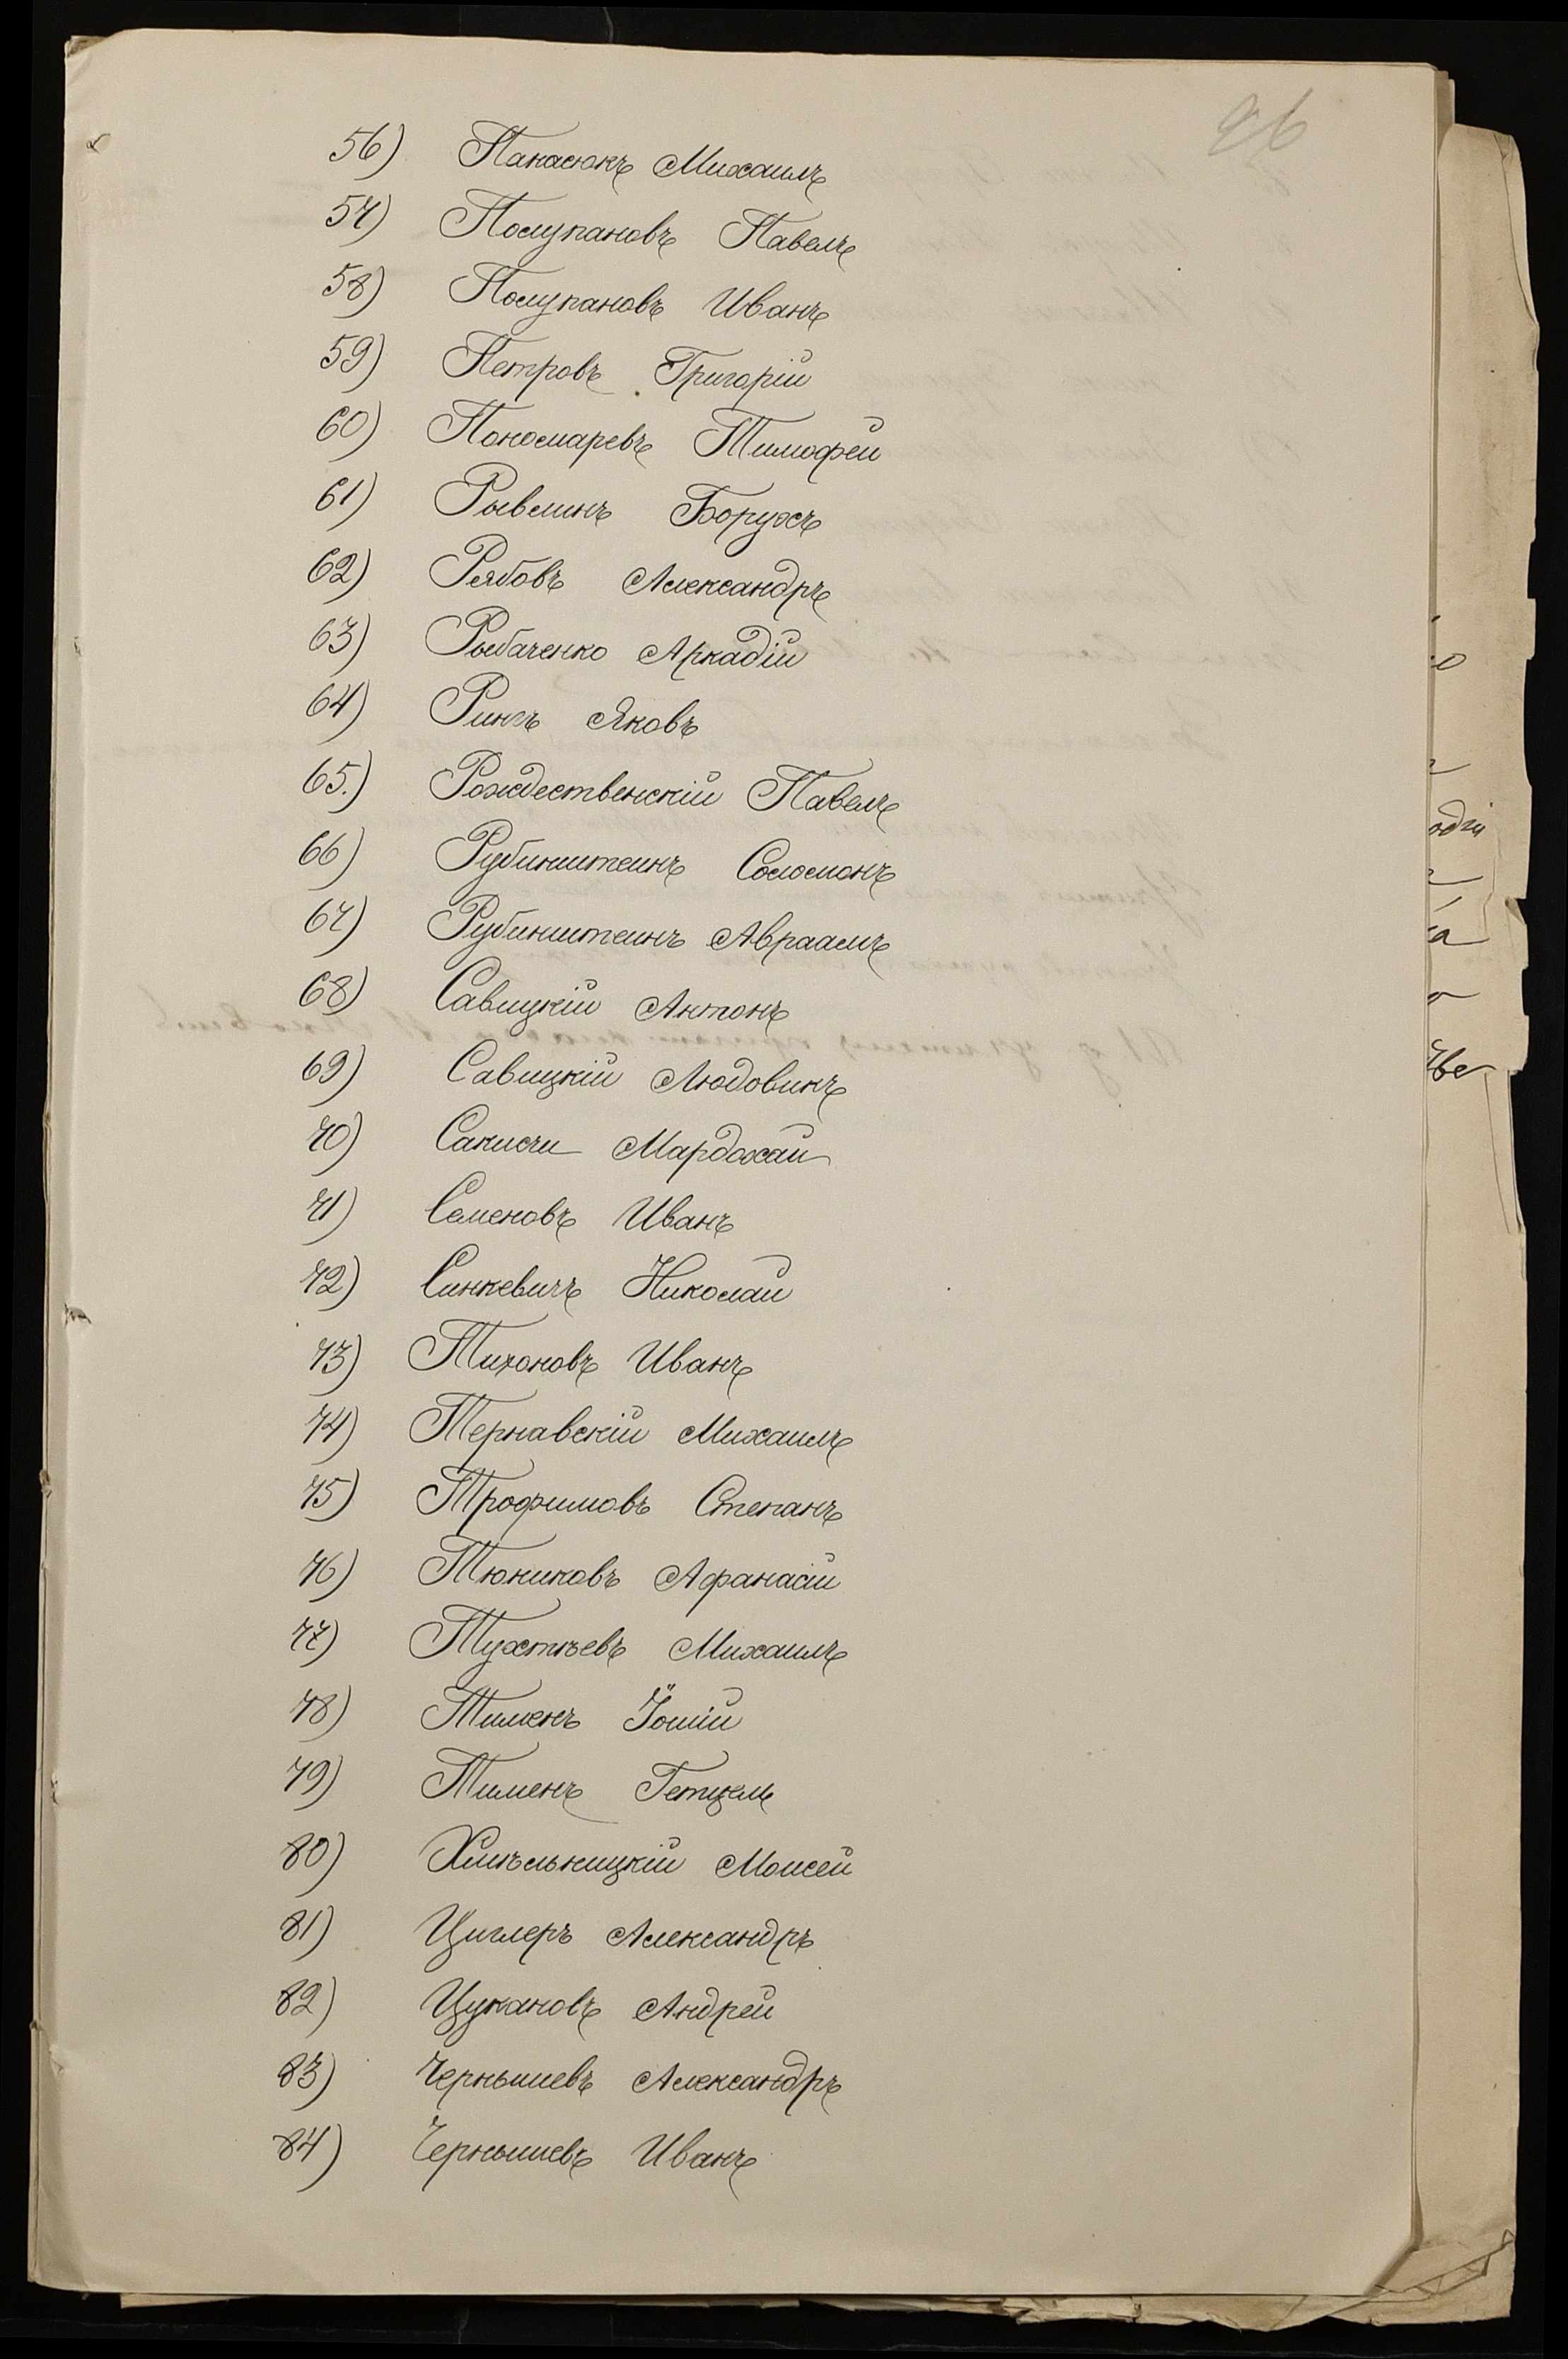 96
56) Панасюкъ Михаилъ
57) Полупановъ Павелъ
58) Полупановъ Иванъ
59) Петровъ Григорій
60) Пономаревъ Тимофей
61) Рывлинъ Борухъ
62) Рябовъ Александръ
63) Рыбаченко Аркадій
64) Рингъ Яковъ
65.) Рождественскій Павелъ
66) Рубинштейнъ Соломонъ
67) Рубинштейнъ Авраамъ
68) Савицкій Антонъ
69) Савицкій Людовикъ
70) Мардохай
71) Семеновъ Иванъ
72) Синкевичъ Николай
73) Тихоновъ Иванъ
74) Тернавскій Михаилъ
75) Трофимовъ Степанъ
76) Тюниковъ Афанасій
77) Тухтѣевъ Михаилъ
78) Тименъ
79) Тименъ Гетцель
80) Хмѣльницкій Моисей
81) Циглеръ Александръ
82) Цукановъ Андрей
83) Чернышевъ Александръ
84) Чернышевъ Иванъ